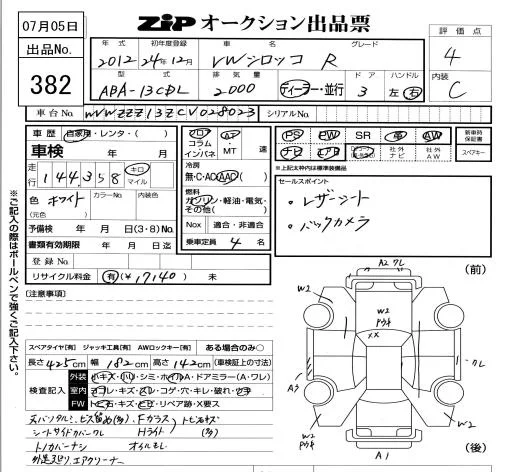 07月05日
ZiP オークション出品票
出品No.
382
年式 初年度登録 車名 グレード
2012 24年12月 VWシロッコ R
型式 排気量 ドア ハンドル
ABA-13CDL 2000 ディーラー・並行 3 左 右
評価点
4
内装
C
車台No. WVWZZZ13ZCV028023 シリアルNo.
車歴 自家用・レンタ・( )
車検 年 月
走行 144,358 キロ マイル
色 ホワイト カラーNo. 内装色
(元色)
予備検 年 月 日(3・8)No.
書類有効期限 年 月 日迄
登録No.
リサイクル料金 有(¥17140) 未
フロア コラム インパネ AT・MT 速
冷房
無・C・AC・AAC( )
燃料
ガソリン・軽油・電気・その他( )
Nox 適合・非適合
乗車定員 4 名
PS PW SR 革 AW
ナビ エアB 社外ナビ 社外AW
新車時保証書
スペアキー
※上記太枠内は標準装備品
セールスポイント
・レザーシート
・バックカメラ
※ご記入の際はボールペンで強く記入下さい。
[注意事項]
スペアタイヤ[有] ジャッキ工具[有] AWロックキー[有] ある場合のみ○
長さ 425cm 幅 182cm 高さ 142cm (車検証上の寸法)
検査記入
外装 キズ・凹・シミ・ホイルA・ドアミラー(A・ワレ)
室内 ヨゴレ・キズ・スレ・コゲ・穴・キレ・破れ・ウキ
FW トビ石・キズ・ヒビ・リペア跡・X要ス
Fガラストビ石キズ
シートサイドカバーワレ Hライト(多)
オイルモレ
エアクリーナー
(前)
A2 ワレ
W2
W2
アウキ
XX
W2
ワレ
Aク
W2
アウキ
W2
A1
(後)